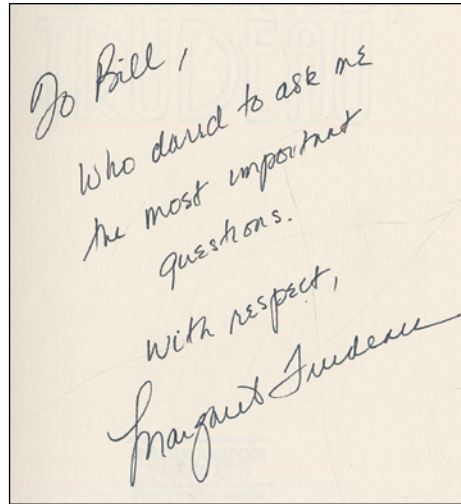 To Bill,
Who dared to ask me
the most important
questions.
With respect,
Margaret Trudeau
TRUDEAU